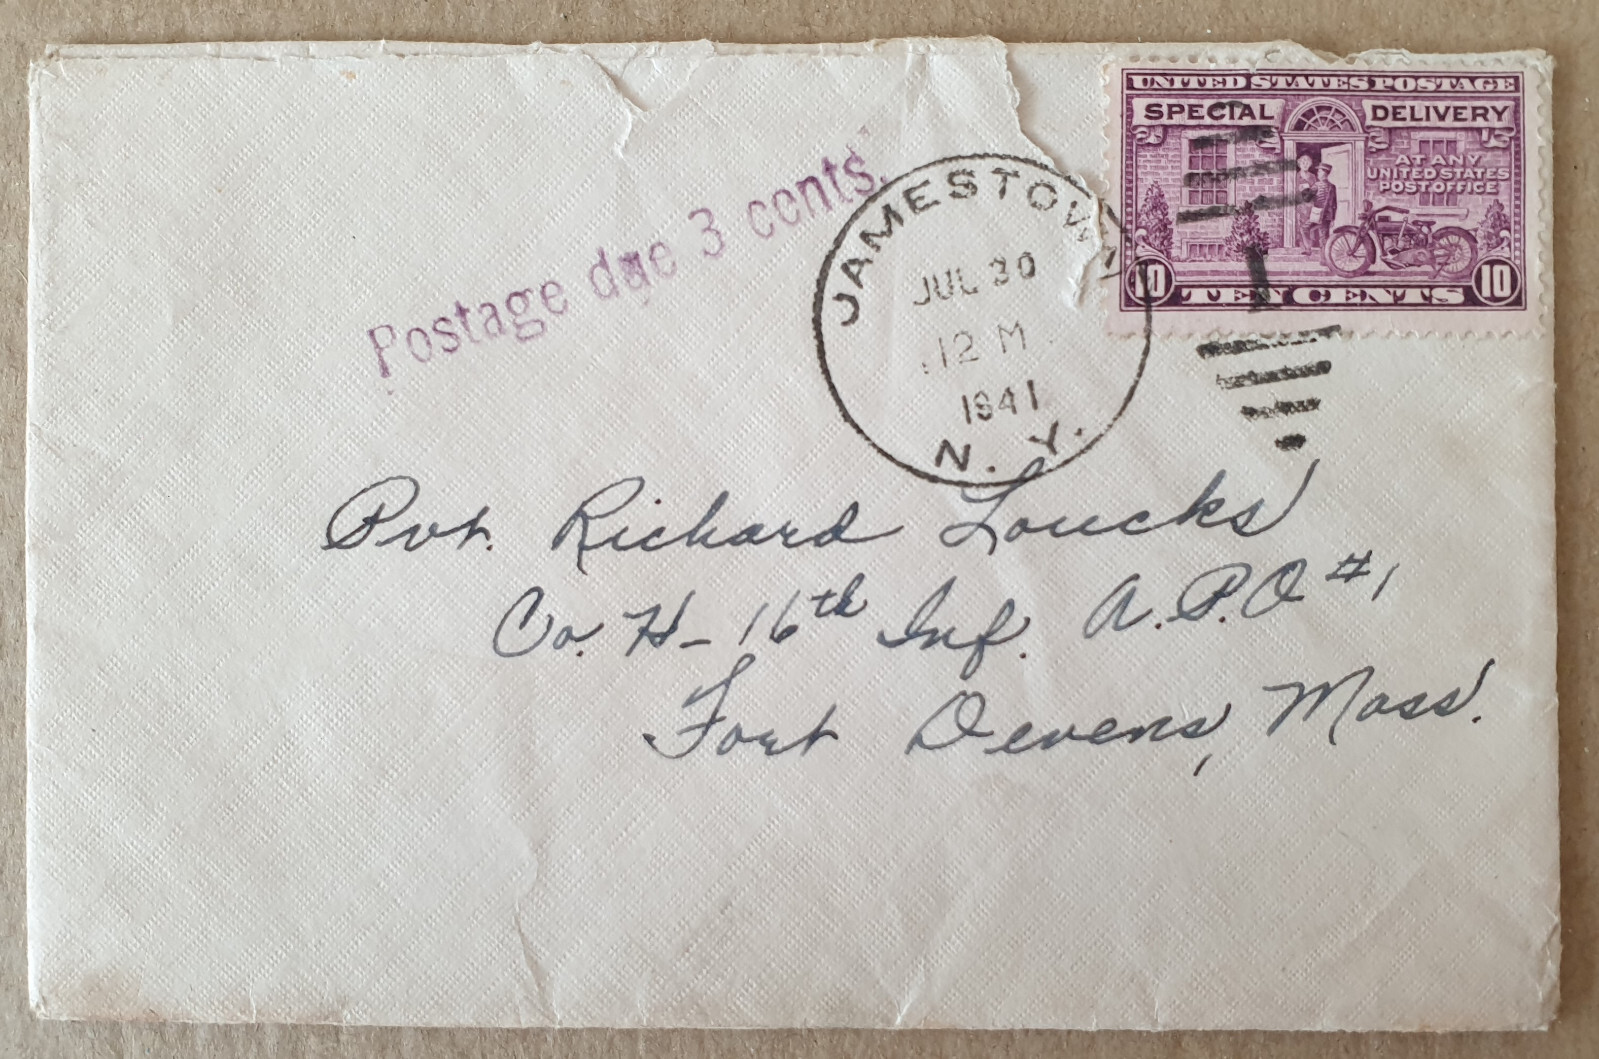 UNITED STATES POSTAGE
SPECIAL DELIVERY
AT ANY
UNITED STATES
POST OFFICE
10 TEN CENTS 10
Postage due 3 cents.
JAMESTOWN
JUL 30
12 M
1941
N. Y.
1
Pvt. Richard Loucks
Co. H- 16th Inf. A.P.O #1
Fort Devens, Mass.